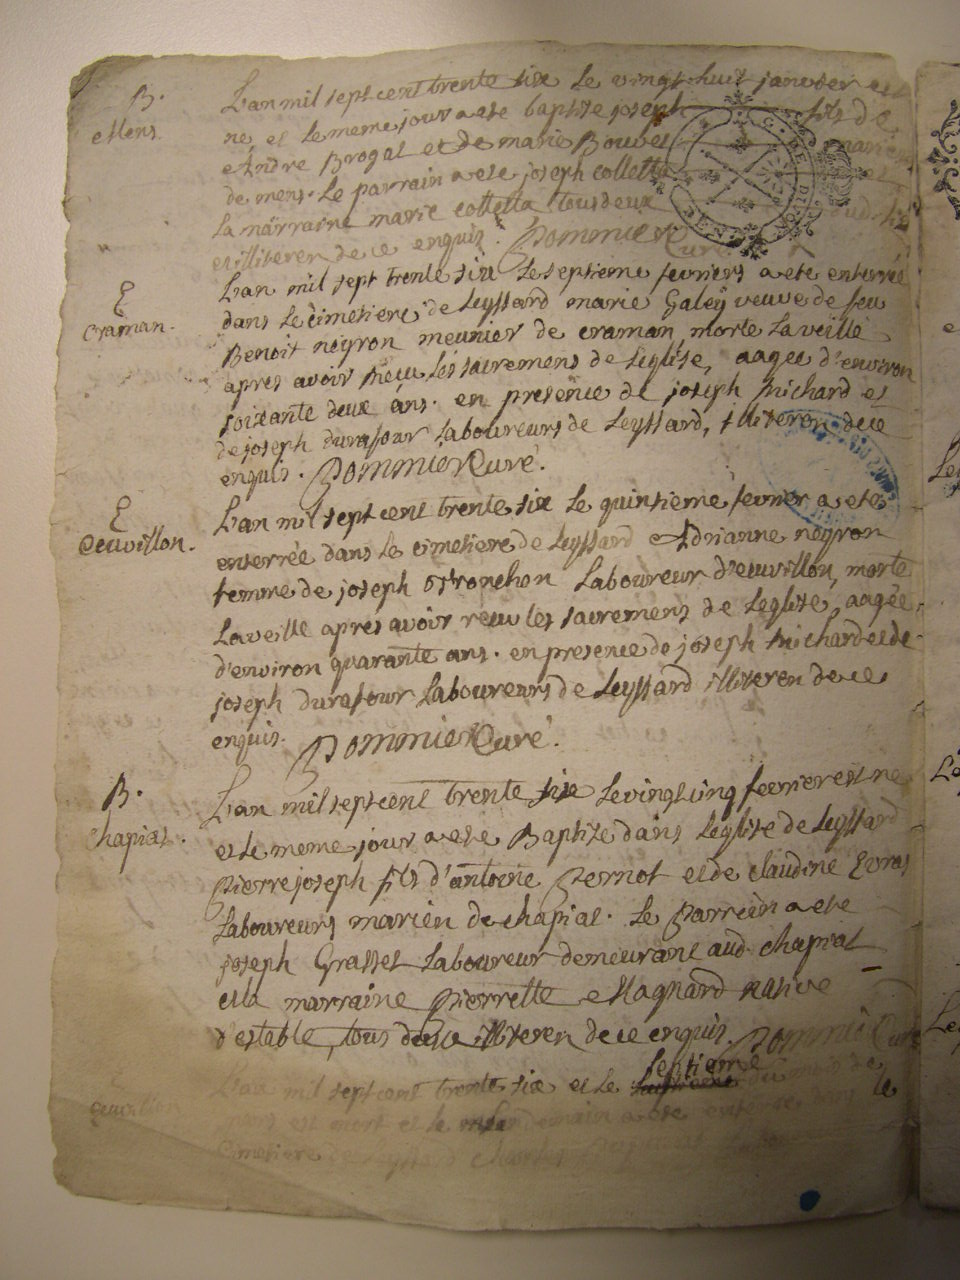 B.
Mens
L'an mil sept cent trente six le vingt huit janvier est
né et le meme jour a ete baptize joseph fils de
André Brogat et de marie Bouvet mariés
de mens. Le parrain a ete joseph colletta et
la marraine marie colletta tous deux dud. lieu
et illiteren de ce enquis. Pommier Curé
E
craman.
L'an mil sept trente six le septieme fevriers a ete enterrée
dans le cimetiere de Leyssard marie Galey veuve de feu
Benoit négron meunier de craman, morte la veille
apres avoir receu les sacremens de l'eglise, aagée d'environ
soixante deux ans. en presence de joseph Michard et
de joseph durafour laboureurs de Leyssard, illiteren de ce
enquis. Pommier Curé.
E
Ceuvillon.
L'an mil sept cent trente six le quinsieme fevrier a ete
enterrée dans le cimetiere de Leyssard Adrianne négron
femme de joseph Ostronchon laboureur d'euvillon, morte
la veille apres avoir receu les sacremens de l'eglise, aagée
d'environ quarante ans. en presence de joseph Michard et de
joseph durafour laboureurs de Leyssard illiteren de ce
enquis. Pommier Curé.
B.
Chapiat.
L'an mil sept cent trente six le vingt cinq fevrier est né
et le meme jour a ete Baptize dans l'eglise de Leyssard
Pierre joseph fils d'antoine Pernot et de claudine Evras
laboureurs mariés de chapiat. Le Parrein a ete
joseph Grasset laboureur demeurant aud. chapiat
et la marraine Pierrette Magnard native
d'estable, tous deux illiteren de ce enquis. Pommier Curé
Ceuvillon
septieme
L'an mil sept cent trente six et le du mois de
mars est mort et le lendemain a ete enterré dans le
cimetiere de Leyssard